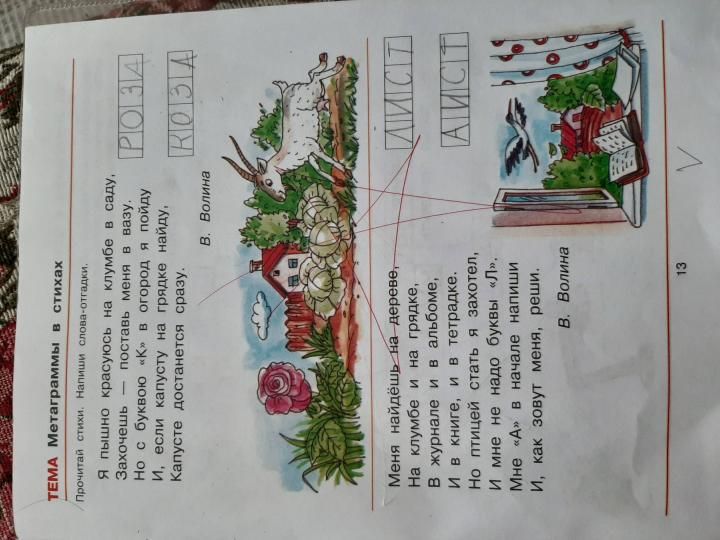 ТЕМА Метаграммы в стихах
Прочитай стихи. Напиши слова-отгадки.
Я пышно красуюсь на клумбе в саду,
Захочешь — поставь меня в вазу.
Но с буквою «К» в огород я пойду
И, если капусту на грядке найду,
Капусте достанется сразу.
В. Волина
РОЗА
КОЗА
Меня найдёшь на дереве,
На клумбе и на грядке,
В журнале и в альбоме,
И в книге, и в тетрадке.
Но птицей стать я захотел,
И мне не надо буквы «Л».
Мне «А» в начале напиши
И, как зовут меня, реши.
В. Волина
ЛИСТ
АИСТ
13